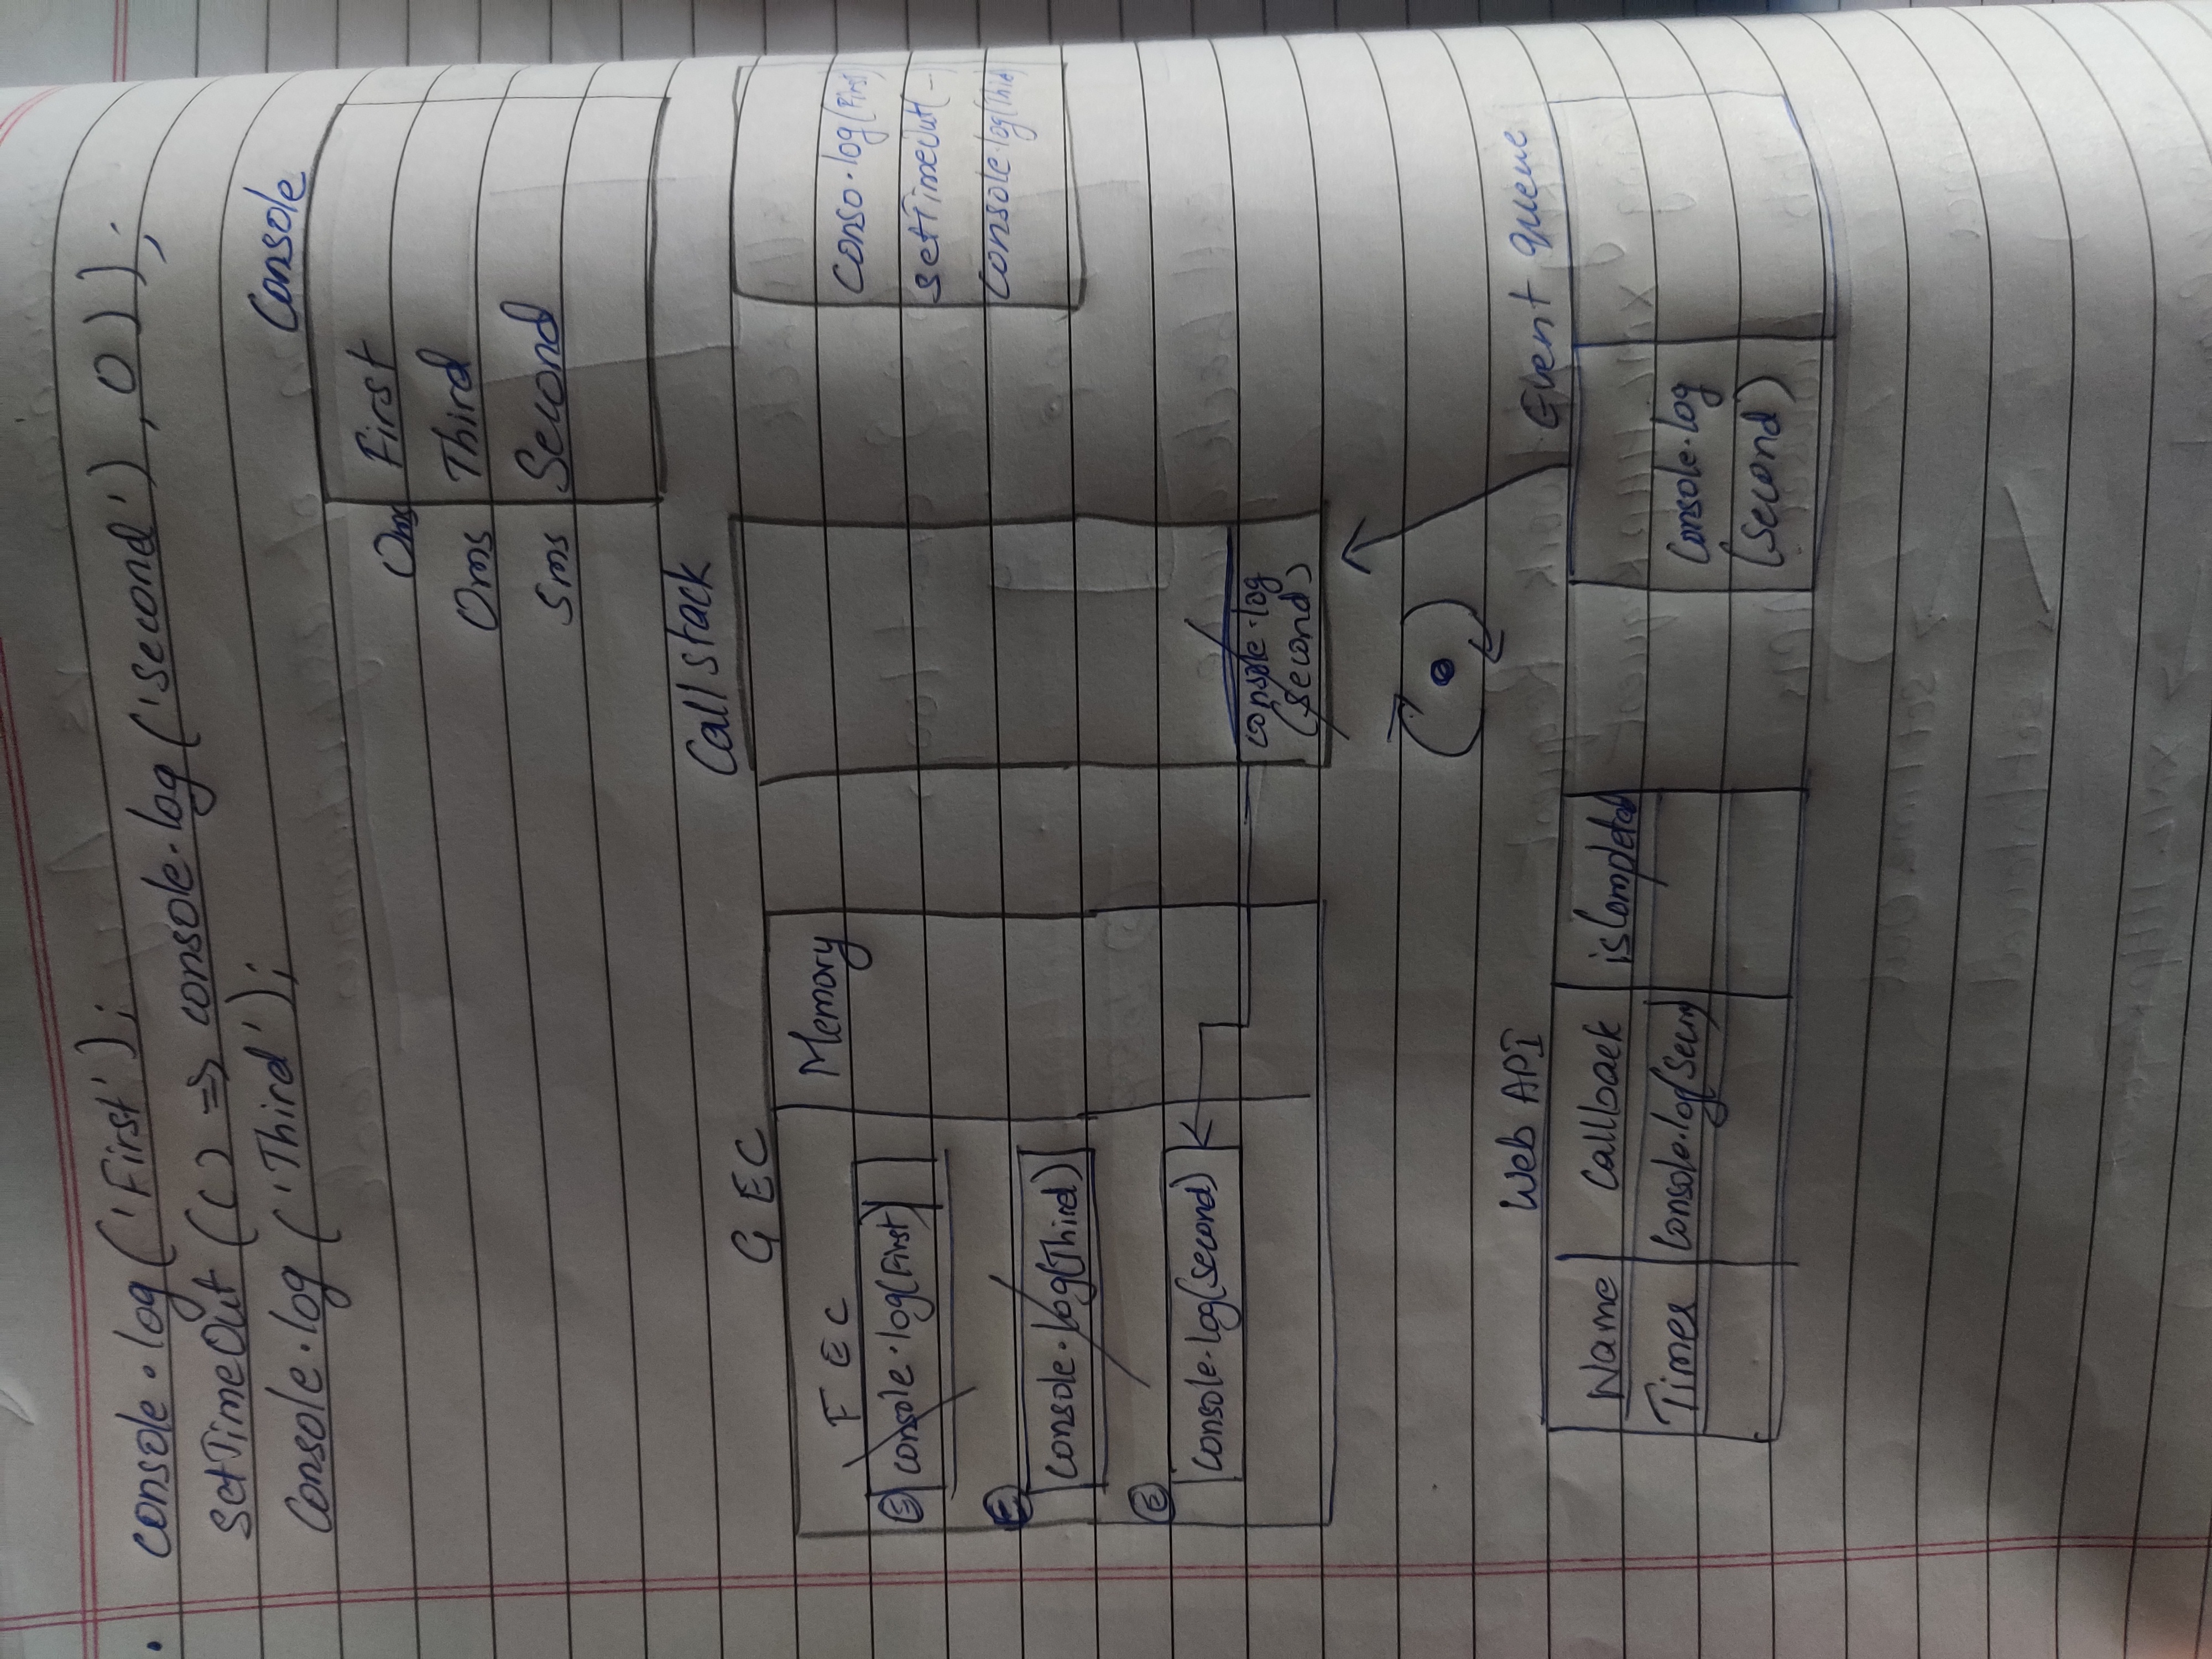 console.log('First');
setTimeOut(() => console.log('second'), 0));
Console.log('Third');
Console
0ms First
0ms Third
5ms Second
Call stack
GEC
FEC
Memory
E console.log(First)
E console.log(Third)
E console.log(second)
console.log
(second)
Conso.log(First)
setTimeOut(-
Console.log(Third)
Web API
Name Callback isCompleted
Timer Console.log(Secon)
Event queue
Console.log
(second)